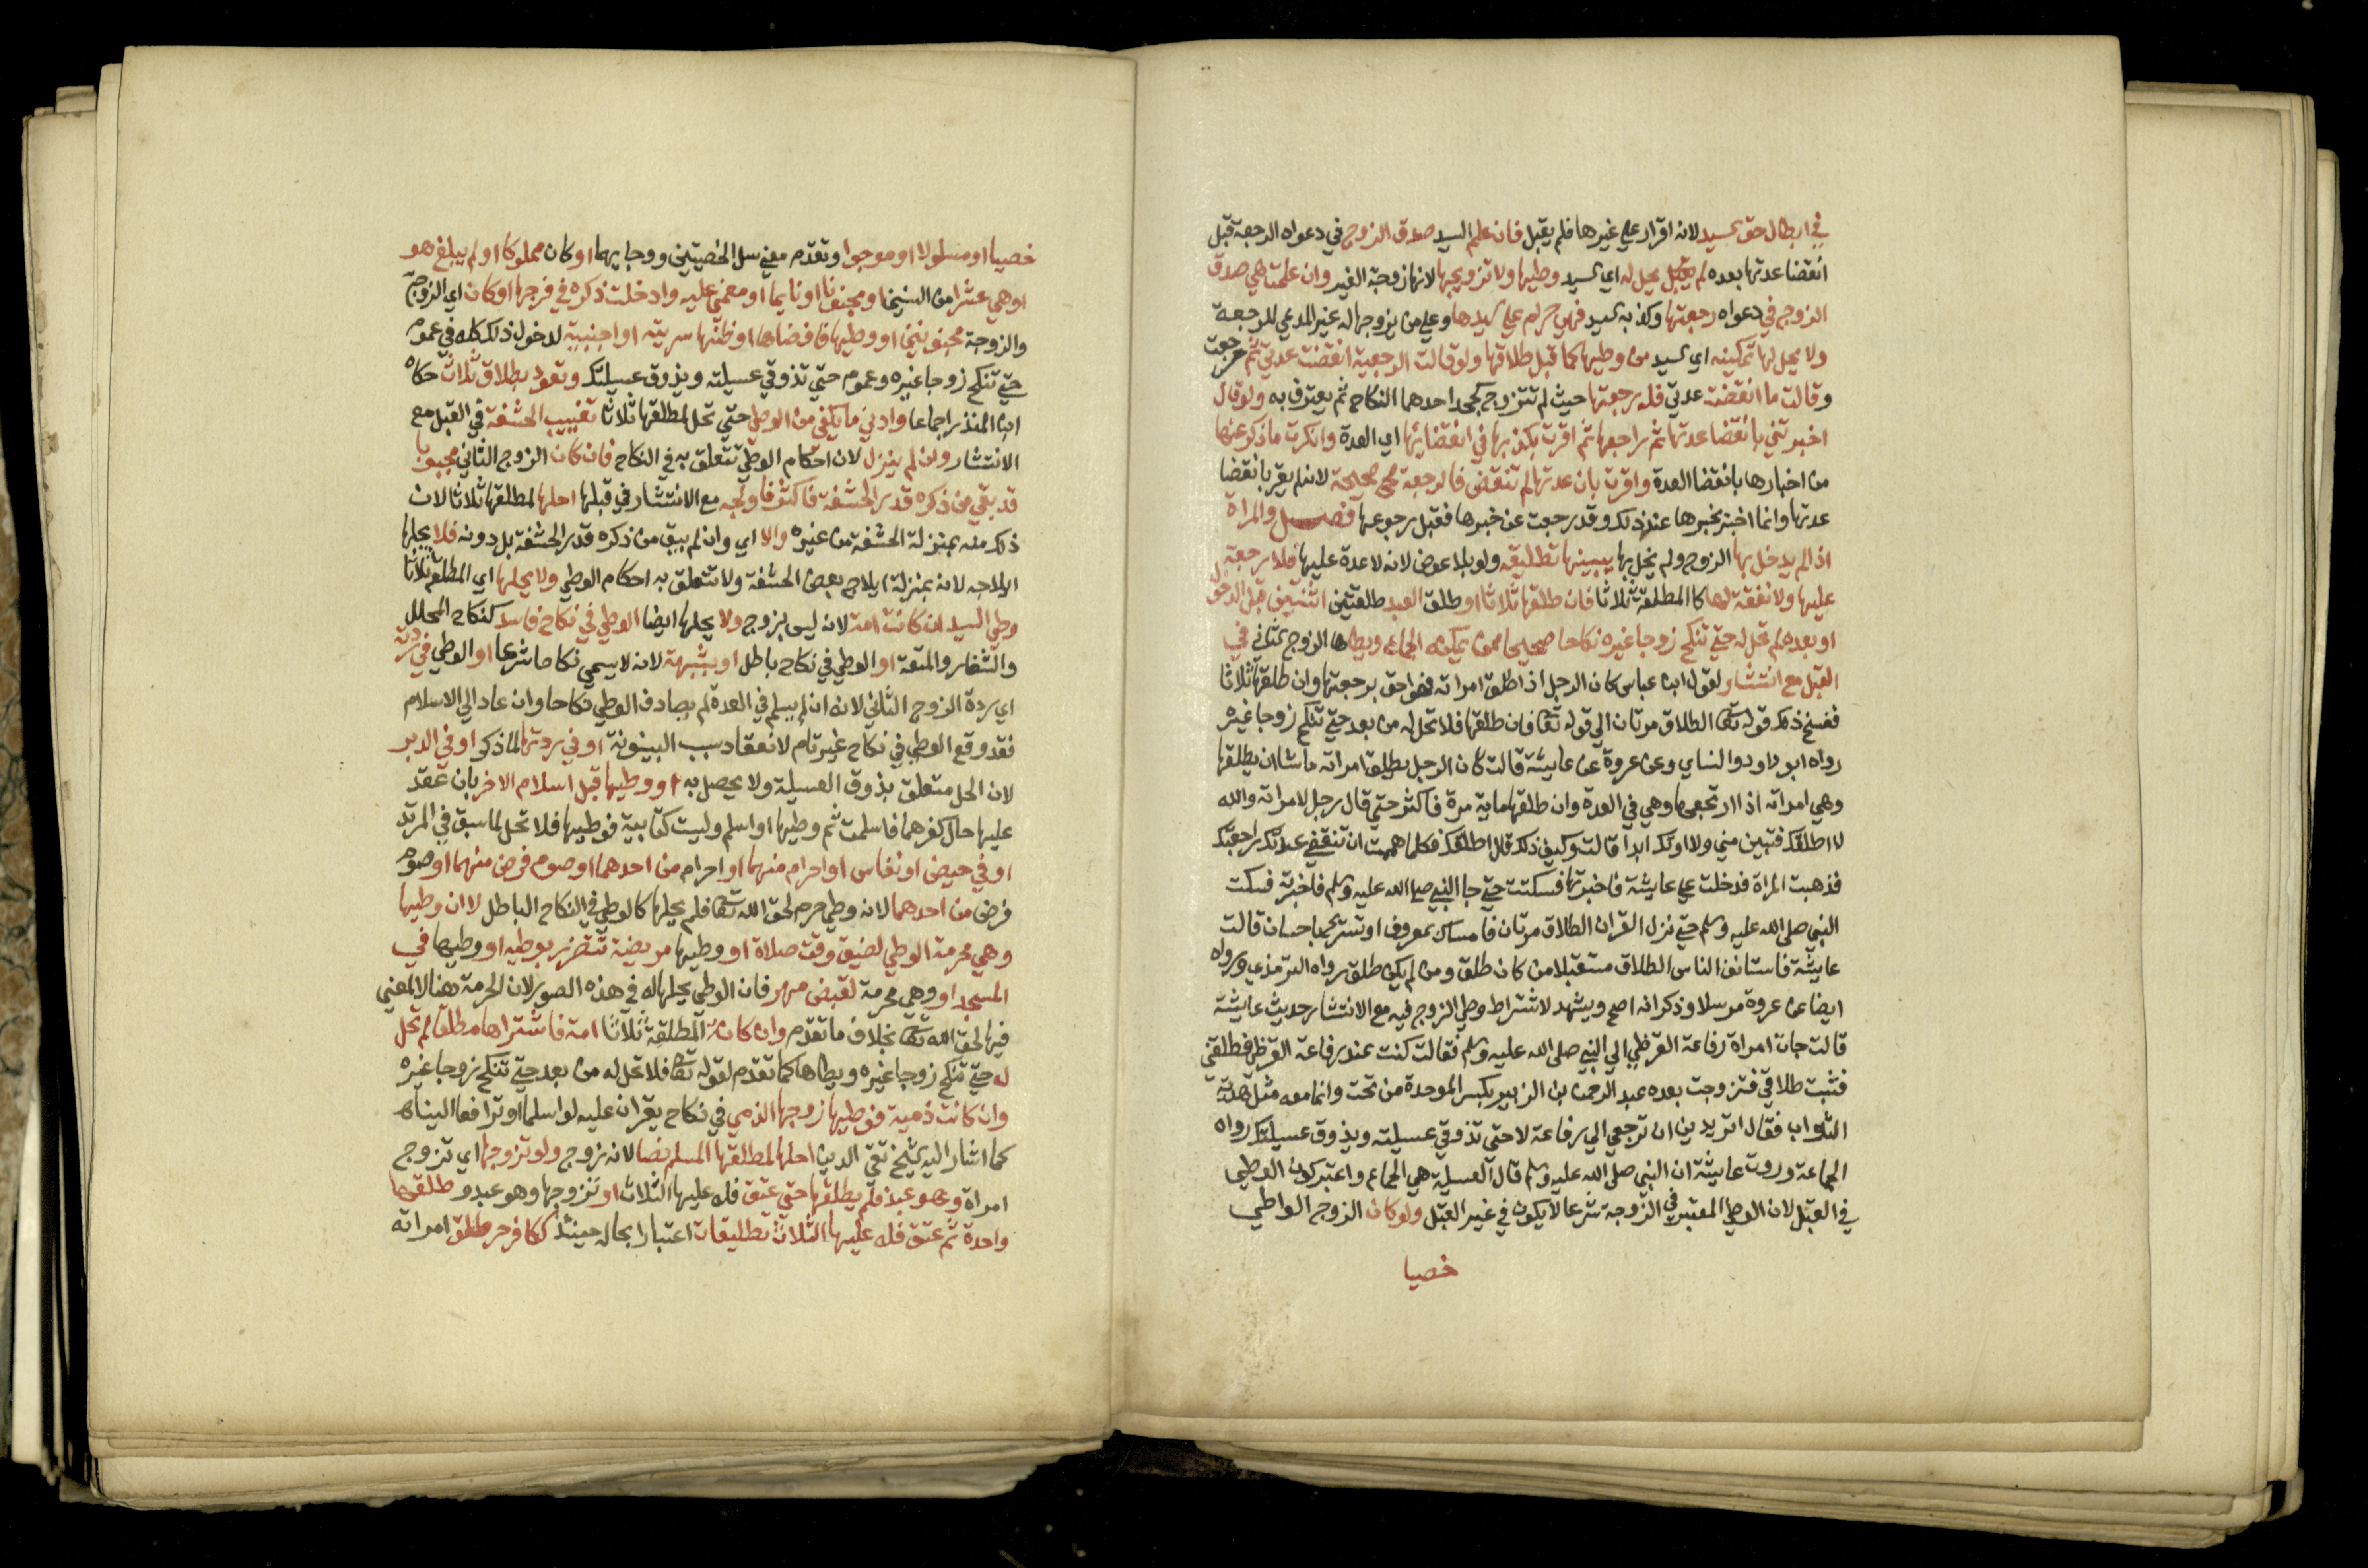 في ابطال حق السيد لانه اقرار علي غيرها فلم يقبل فان علم السيد صدق الزوج في دعواه الرجعة قبل
انقضا عدتها بعده لم يحل له اي السيد وطيها ولا تزويجها لانها زوجة الغير وان علمت هي صدق
الزوج في دعواه رجعتها وكذبه السيد فهي حرام علي سيدها وعلي من يزوجها له غير المدعي للرجعة
ولا يحل لها تمكينه اي السيد من وطيها كما قبل طلاقها ولو قالت الرجعية انقضت عدتي ثم رجعت
وقالت ما انقضت عدتي فله رجعتها حيث لم تتزوج كجحد احدهما النكاح ثم يعترف به ولو قال
اخبرتني بانقضا عدتها ثم راجعها ثم اقرت بكذبها في انقضايها اي العدة وانكرت ما ذكر عنها
من اخبارها بانقضا العدة واقرت بان عدتها لم تنقض فالرجعة صحيحة لانه لم يقر بانقضا
عدتها وانما اخبر بخبرها عن ذلك وقد رجعت عن خبرها فقبل رجوعها فصل والمراة
اذا لم يدخل بها الزوج ولم يخل بها يبينها تطليقه ولو بلا عوض لانه لا عدة عليها فلا رجعة
عليها ولا نفقة لها كالمطلقة ثلاثا فان طلقها ثلاثا او طلق العبد طلقتين اثنتين قبل الدخول
او بعده لم تحل له حتي تنكح زوجا غيره نكاحا صحيحا ممن يمكنه الجماع ويطاها الزوج الثاني في
القبل مع انتشار لقول ابن عباس كان الرجل اذا طلق امراته فهو احق برجعتها وان طلقها ثلاثا
فنسخ ذلك قوله تعالى الطلاق مرتان الي قوله تعالى فان طلقها فلا تحل له من بعد حتي تنكح زوجا غيره
رواه ابو داود والنساي وعن عروة عن عايشة قالت كان الرجل يطلق امراته ما شا ان يطلقها
وهي امراته اذا ارتجعها وهي في العدة وان طلقها ماية مرة فاكثر حتي قال رجل لامراته والله
لا اطلقك فتبين مني ولا اوتك ابدا قالت وكيف ذلك قال اطلقك فكلما همت ان تنقضي عدتك راجعتك
فذهبت المراة فدخلت علي عايشة فاخبرتها فسكتت حتي جا النبي صلي الله عليه وسلم فاخبرته فسكت
النبي صلي الله عليه وسلم حتي نزل القران الطلاق مرتان فامساك بمعروف او تسريح باحسان قالت
عايشة فاستانف الناس الطلاق مستقبلا من كان طلق ومن لم يكن طلق رواه الترمذي ورواه
ايضا عن عروة مرسلا وذكر انه اصح ويشهد لاشتراط وطي الزوج فيه مع الانتشار حديث عايشة
قالت جات امراة رفاعة القرظي الي النبي صلي الله عليه وسلم فقالت كنت عند رفاعة القرظي فطلقني
فثبت طلاقي فتزوجت بعده عبد الرحمن ابن الزبير بكسر الموحدة من تحت وانما معه مثل هدبة
الثواب فقال اتريدين ان ترجعي الي رفاعة لا حتي تذوقي عسيلته ويذوق عسيلتك رواه
الجماعة وروت عايشة ان النبي صلي الله عليه وسلم قال العسيلة هي الجماع واعتبر كون الوطي
في القبل لان الوطي المعتبر في الزوجة شرعا لا يكون في غير القبل ولو كان الزوج الواطي
خصيا
خصيا او مسلولا او موجوا وتقدم معني سل الخصيتين ووجايهما او كان مملوكا او لم يبلغ هو
او هي عشرا من السنين او مجنونا او نايما او مغمي عليه وادخلت ذكره في فرجها او كان اي الزوج
والزوجة مجنونين او وطيها فافضاها او ظنها سريته او اجنبية لدخول ذلك كله في عموم
حتي تنكح زوجا غيره وعموم حتي تذوقي عسيلته ويذوق عسيلتك وتعود بطلاق ثلاث حكاه
ابن المنذر اجماعا وادني ما يكفي من الوطي حتي تحل لمطلقها ثلاثا تغييب الحشفة في القبل مع
الانتشار وان لم ينزل لان احكام الوطي تتعلق به في النكاح فان كان الزوج الثاني مجبوبا
قد بقي من ذكره قدر الحشفة فاكثر فاولجه مع الانتشار في قبلها احلها لمطلقها ثلاثا لان
ذلك منه بمنزلة الحشفة من غيره والا اي وان لم يبق من ذكره قدر الحشفة بل دونه فلا يحلها
ايلاجه لانه بمنزلة ايلاج بعض الحشفة ولا تتعلق به احكام الوطي ولا يحلها اي المطلقة ثلاثا
وطي السيد ان كانت امة لانه ليس بزوج ولا يحلها ايضا الوطي في نكاح فاسد كنكاح المحلل
والشغار والمتعة او الوطي في نكاح باطل او بشبهة لانه لا يسمي نكاحا شرعا او الوطي في ردته
اي ردة الزوج الثاني لانه ان لم يسلم في العدة لم يصادف الوطي نكاحا وان عاد الي الاسلام
فقد وقع الوطي في نكاح غير تام لانعقاد سبب البينونة او في ردتها لما ذكر او في الدبر
لان الحل متعلق بذوق العسيلة ولا يحصل به او وطيها قبل اسلام الاخر بان عقد
عليها حال كفرهما فاسلمت ثم وطيها او اسلم وليست كتابية فوطيها فلا تحل لما سبق في المرتد
او في حيض او نفاس او احرام منهما او احرام من احدهما او صوم فرض منهما او صوم
فرض من احدهما لانه وطي حرم لحق الله تعالى فلم يحلها كالوطي في النكاح الباطل لا ان وطيها
وهي محرمة الوطي لضيق وقت صلاة او وطيها مريضة تتضرر بوطيه او وطيها في
المسجد او وهي محرمة لقبض مهر فان الوطي يحلها له في هذه الصور لان الحرمة هنا لا لمعني
فيها لحق الله تعالى بخلاف ما تقدم وان كانت المطلقة ثلاثا امة فاشتراها مطلقها لم تحل
له حتي تنكح زوجا غيره ويطاها كما تقدم لقوله تعالى فلا تحل له من بعد حتي تنكح زوجا غيره
وان كانت ذمية فوطيها زوجها الذمي في نكاح يقران عليه لو اسلما او ترافعا الينا
كما اشار اليه الشيخ تقي الدين احلها لمطلقها المسلم نصا لانه زوج ولو تزوجها اي تزوج
امراة وهو عبد فلم يطلقها حتي عتق فله عليها الثلاث او تزوجها وهو عبد وطلقها
واحدة ثم عتق فله عليها الثلاث تطليقات اعتبارا بحاله حينئذ ككافر حر طلق امراته